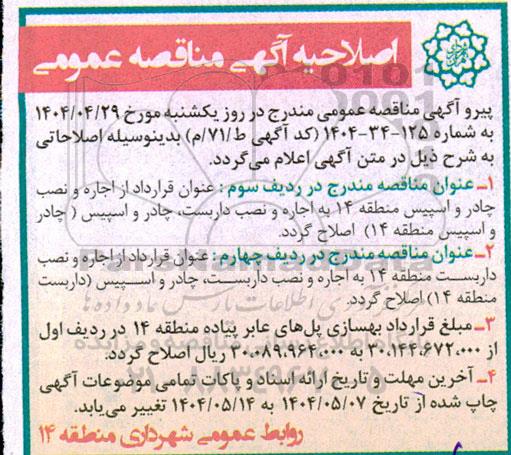 اصلاحیه آگهی مناقصه عمومی
پیرو آگهی مناقصه عمومی مندرج در روز یکشنبه مورخ ۱۴۰۴/۰۴/۲۹
به شماره ۱۲۵-۳۴-۱۴۰۴ (کد آگهی ط/۷۱/م) بدینوسیله اصلاحاتی
به شرح ذیل در متن آگهی اعلام می‌گردد.
۱ـ عنوان مناقصه مندرج در ردیف سوم : عنوان قرارداد از اجاره و نصب
چادر و اسپیس منطقه ۱۴ به اجاره و نصب داربست، چادر و اسپیس ( چادر
و اسپیس منطقه ۱۴) اصلاح گردد.
۲ـ عنوان مناقصه مندرج در ردیف چهارم : عنوان قرارداد از اجاره و نصب
داربست منطقه ۱۴ به اجاره و نصب داربست، چادر و اسپیس (داربست
منطقه ۱۴) اصلاح گردد.
۳ـ مبلغ قرارداد بهسازی پل‌های عابر پیاده منطقه ۱۴ در ردیف اول
از ۳۰،۱۴۴،۶۷۲،۰۰۰ به ۳۰،۰۸۹،۹۶۴،۰۰۰ ریال اصلاح گردد.
۴ـ آخرین مهلت و تاریخ ارائه اسناد و پاکات تمامی موضوعات آگهی
چاپ شده از تاریخ ۱۴۰۴/۰۵/۰۷ به ۱۴۰۴/۰۵/۱۴ تغییر می‌یابد.
روابط عمومی شهرداری منطقه ۱۴